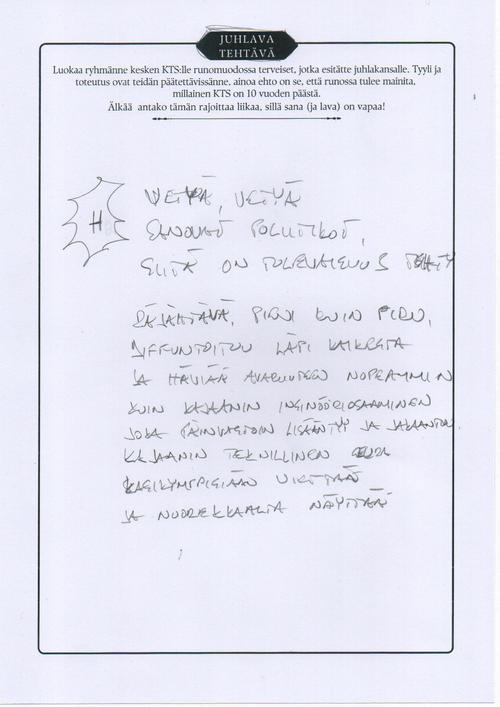 JUHLAVA
TEHTÄVÄ
Luokaa ryhmänne kesken KTS:lle runomuodossa terveiset, jotka esitätte juhlakansalle. Tyyli ja
toteutus ovat teidän päätettävissänne, ainoa ehto on se, että runossa tulee mainita,
millainen KTS on 10 vuoden päästä.
Älkää antako tämän rajoittaa liikaa, sillä sana (ja lava) on vapaa!
H
VETYÄ, VETYÄ
SANOVAT POLIITIKOT,
SIITÄ ON TULEVAISUUS TEHTY
RÄJÄHTÄVÄ, PIENI KUIN PIRU,
DIFFUNTOITUU LÄPI KAIKESTA
JA HÄVIÄÄ AVARUUTEEN NOPEAMMIN
KUIN KAJAANIN INSINÖÖRIOSAAMINEN
JOKA PÄINVASTOIN LISÄÄNTYY JA JAKAANTUU
KAJAANIN TEKNILLINEN SEURA
KASIKYMPPISIÄÄN VIETTÄÄ
JA NUOREKKAALTA NÄYTTÄÄ